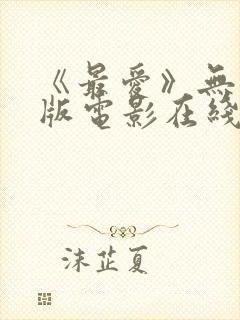 《最愛》無
版電影在綫
沫芷夏